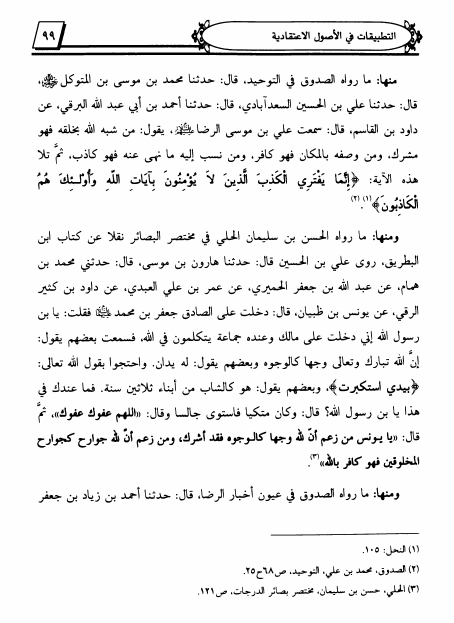 التطبيقات في الأصول الاعتقادية
٩٩
منها: ما رواه الصدوق في التوحيد، قال: حدثنا محمد بن موسى بن المتوكل ،
قال: حدثنا علي بن الحسين السعدآبادي، قال: حدثنا أحمد بن أبي عبد الله البرقي، عن
داود بن القاسم، قال: سمعت علي بن موسى الرضا ، يقول: من شبه الله بخلقه فهو
مشرك، ومن وصفه بالمكان فهو كافر، ومن نسب إليه ما نهى عنه فهو كاذب، ثمَّ تلا
هذه الآية: ﴿إِنَّمَا يَفْتَرِي الْكَذِبَ الَّذِينَ لاَ يُؤْمِنُونَ بِآيَاتِ اللّهِ وَأُوْلـئِكَ هُمُ
الْكَاذِبُونَ﴾(١).(٢)
ومنها: ما رواه الحسن بن سليمان الحلي في مختصر البصائر نقلا عن كتاب ابن
البطريق، روى علي بن الحسين قال: حدثنا هارون بن موسى، قال: حدثني محمد بن
همام، عن عبد الله بن جعفر الحميري، عن عمر بن علي العبدي، عن داود بن كثير
الرقي، عن يونس بن ظبيان، قال: دخلت على الصادق جعفر بن محمد  فقلت: يا بن
رسول الله إني دخلت على مالك وعنده جماعة يتكلمون في الله، فسمعت بعضهم يقول:
إنَّ لله تبارك وتعالى وجها كالوجوه وبعضهم يقول: له يدان. واحتجوا بقول الله تعالى:
﴿بيدي استكبرت﴾، وبعضهم يقول: هو كالشاب من أبناء ثلاثين سنة. فما عندك في
هذا يا بن رسول الله؟ قال: وكان متكيا فاستوى جالسا وقال: «اللهم عفوك عفوك»، ثمَّ
قال: «يا يونس من زعم أنّ لله وجها كالوجوه فقد أشرك، ومن زعم أنّ لله جوارح كجوارح
المخلوقين فهو كافر بالله»(٣).
ومنها: ما رواه الصدوق في عيون أخبار الرضا، قال: حدثنا أحمد بن زياد بن جعفر
(١) النحل: ١٠٥.
(٢) الصدوق، محمد بن علي، التوحيد، ص٦٨ح٢٥.
(٣) الحلي، حسن بن سليمان، مختصر بصائر الدرجات، ص١٢١.